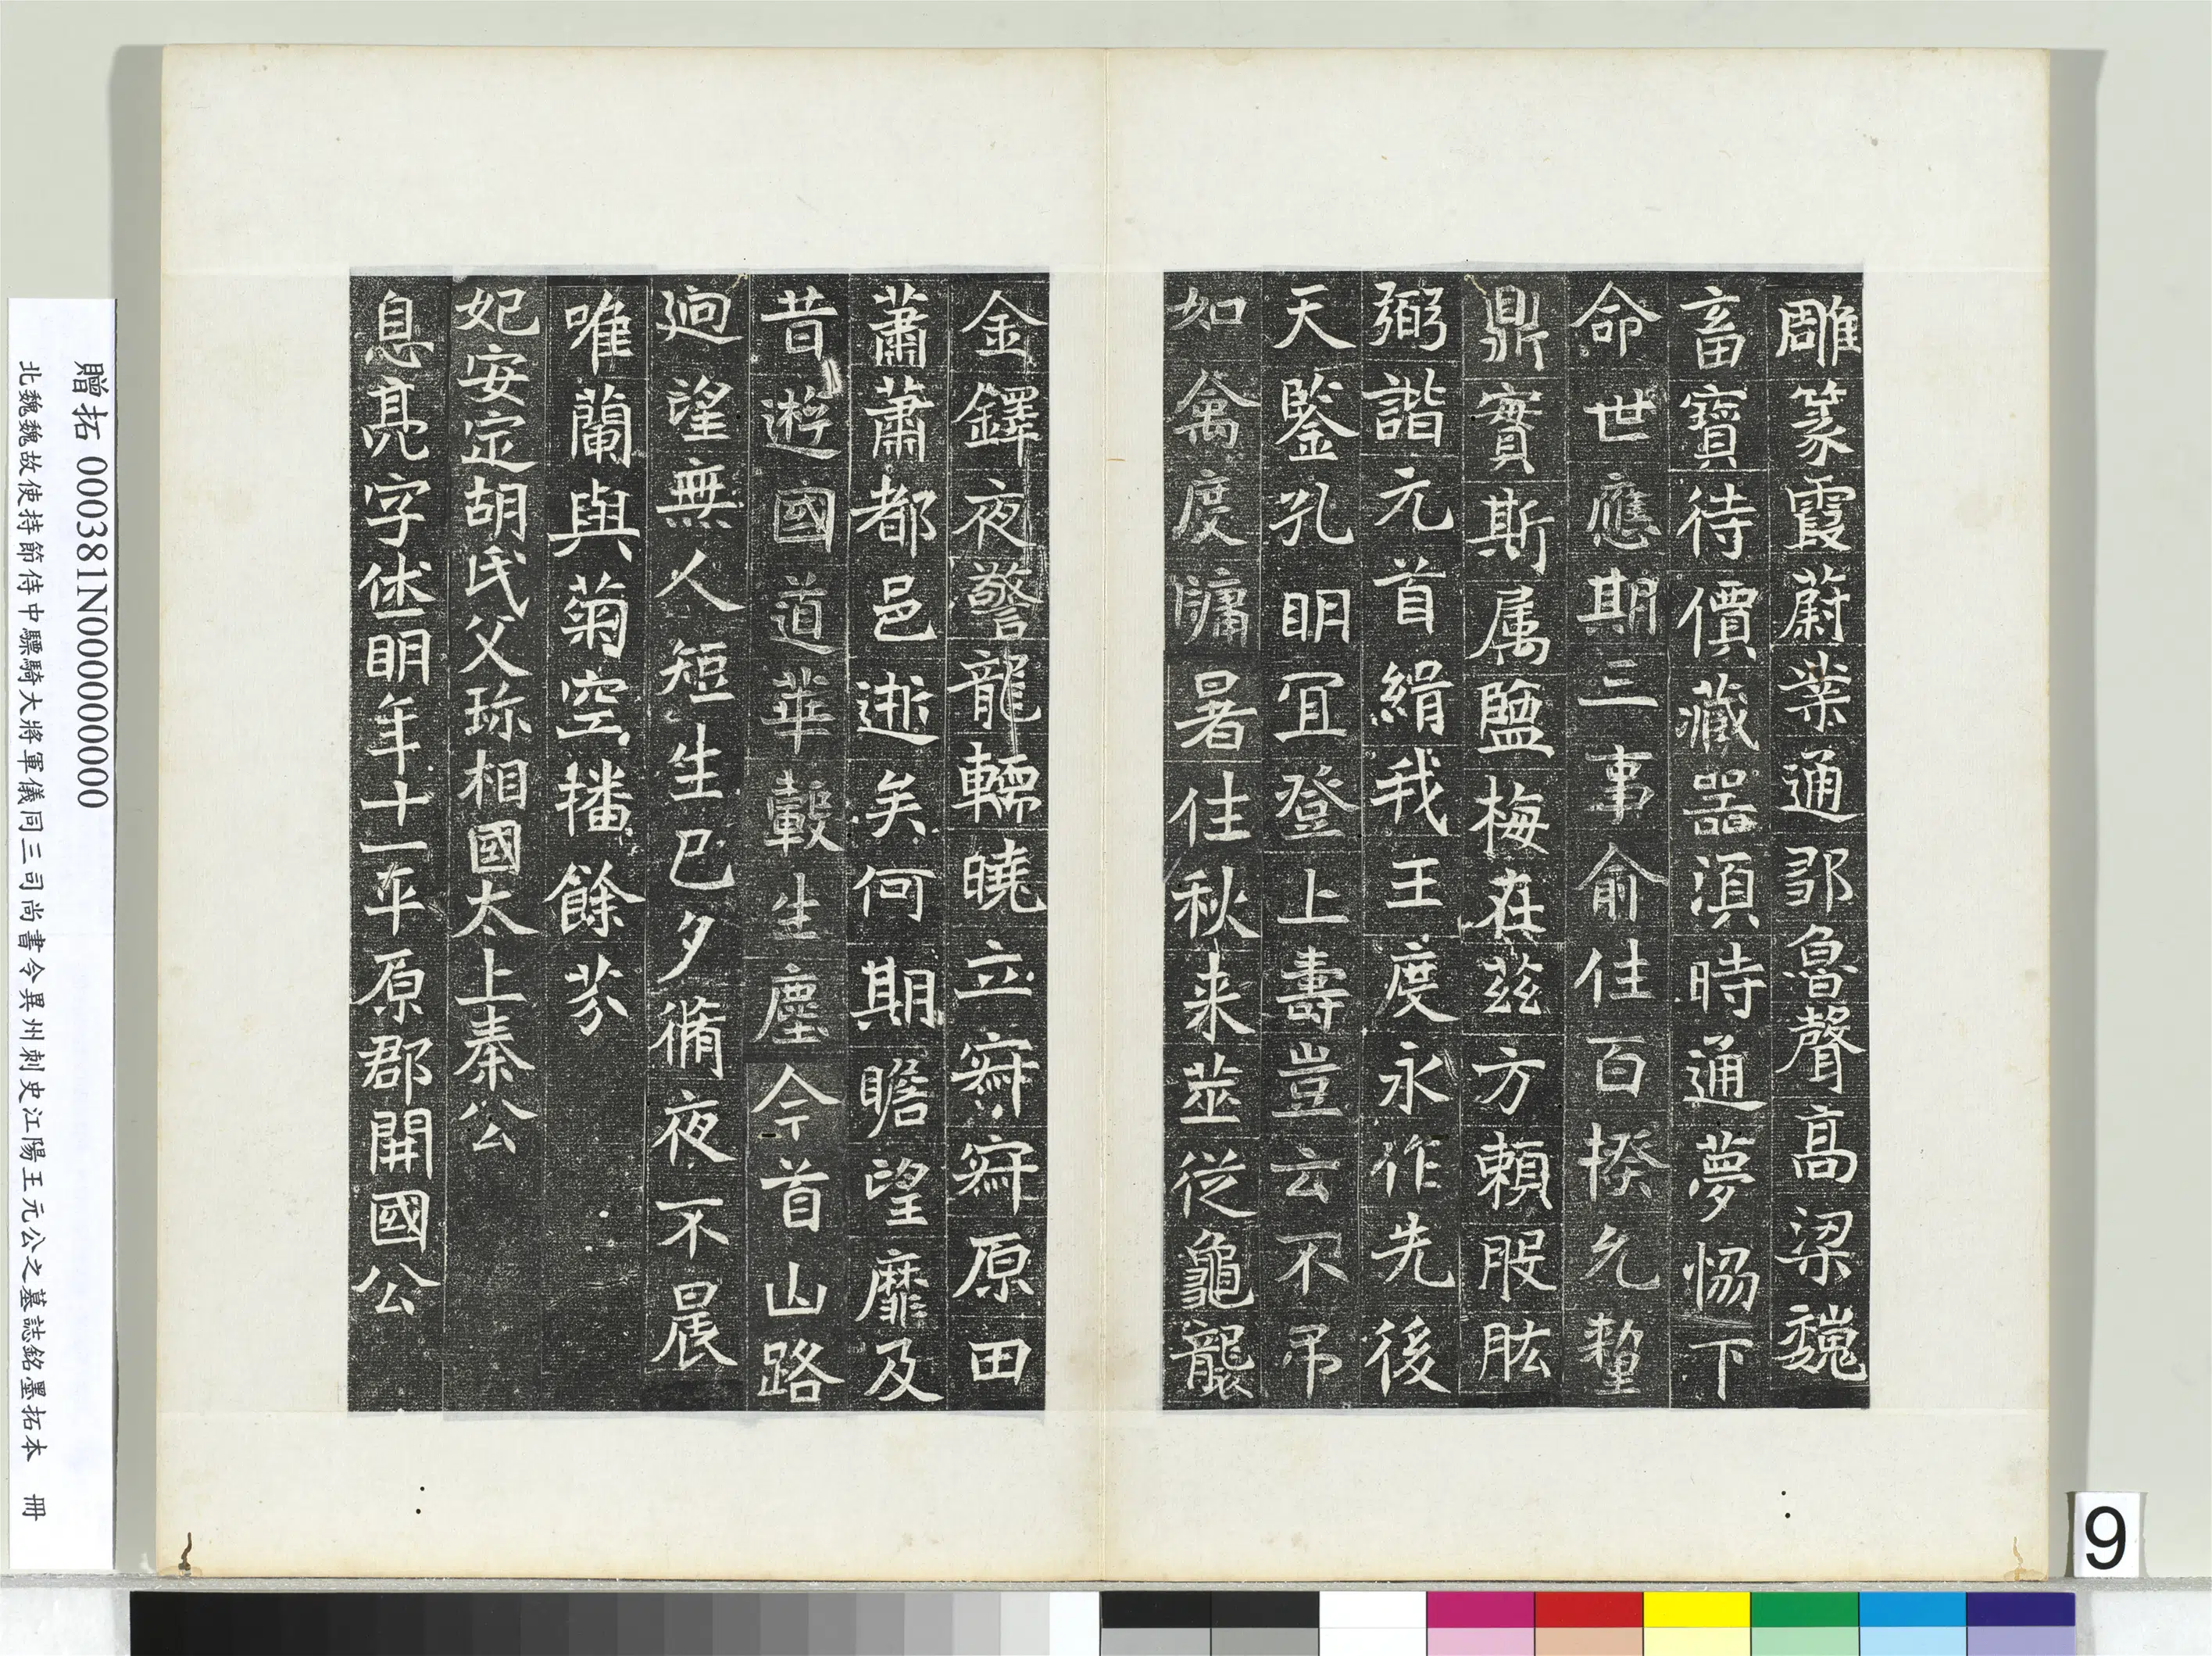 雕篆霞蔚業通鄒魯聲高梁魏
畜寶待價藏器湏時通夢惕下
命世應期三事俞往百揆允釐
鼎實斯属鹽梅在茲方賴股肱
弼諧元首緝我王度永作先後
天鑒孔明冝登上壽豈云不吊
如禽度牗暑往秋来並從龜襲
金鐸夜警龍轜曉立寂寂原田
蕭蕭都邑逝矣何期瞻望靡及
昔遊國道華轂生塵今首山路
迥望無人短生已夕脩夜不晨
唯蘭與菊空播餘芬
妃安定胡氏父珎相國太上秦公
息亮字休明年十一平原郡開國公
贈拓 000381N000000000
北魏魏故使持節侍中驃騎大將軍儀同三司尚書令異州刺史江陽王元公之墓誌銘墨拓本 冊
9